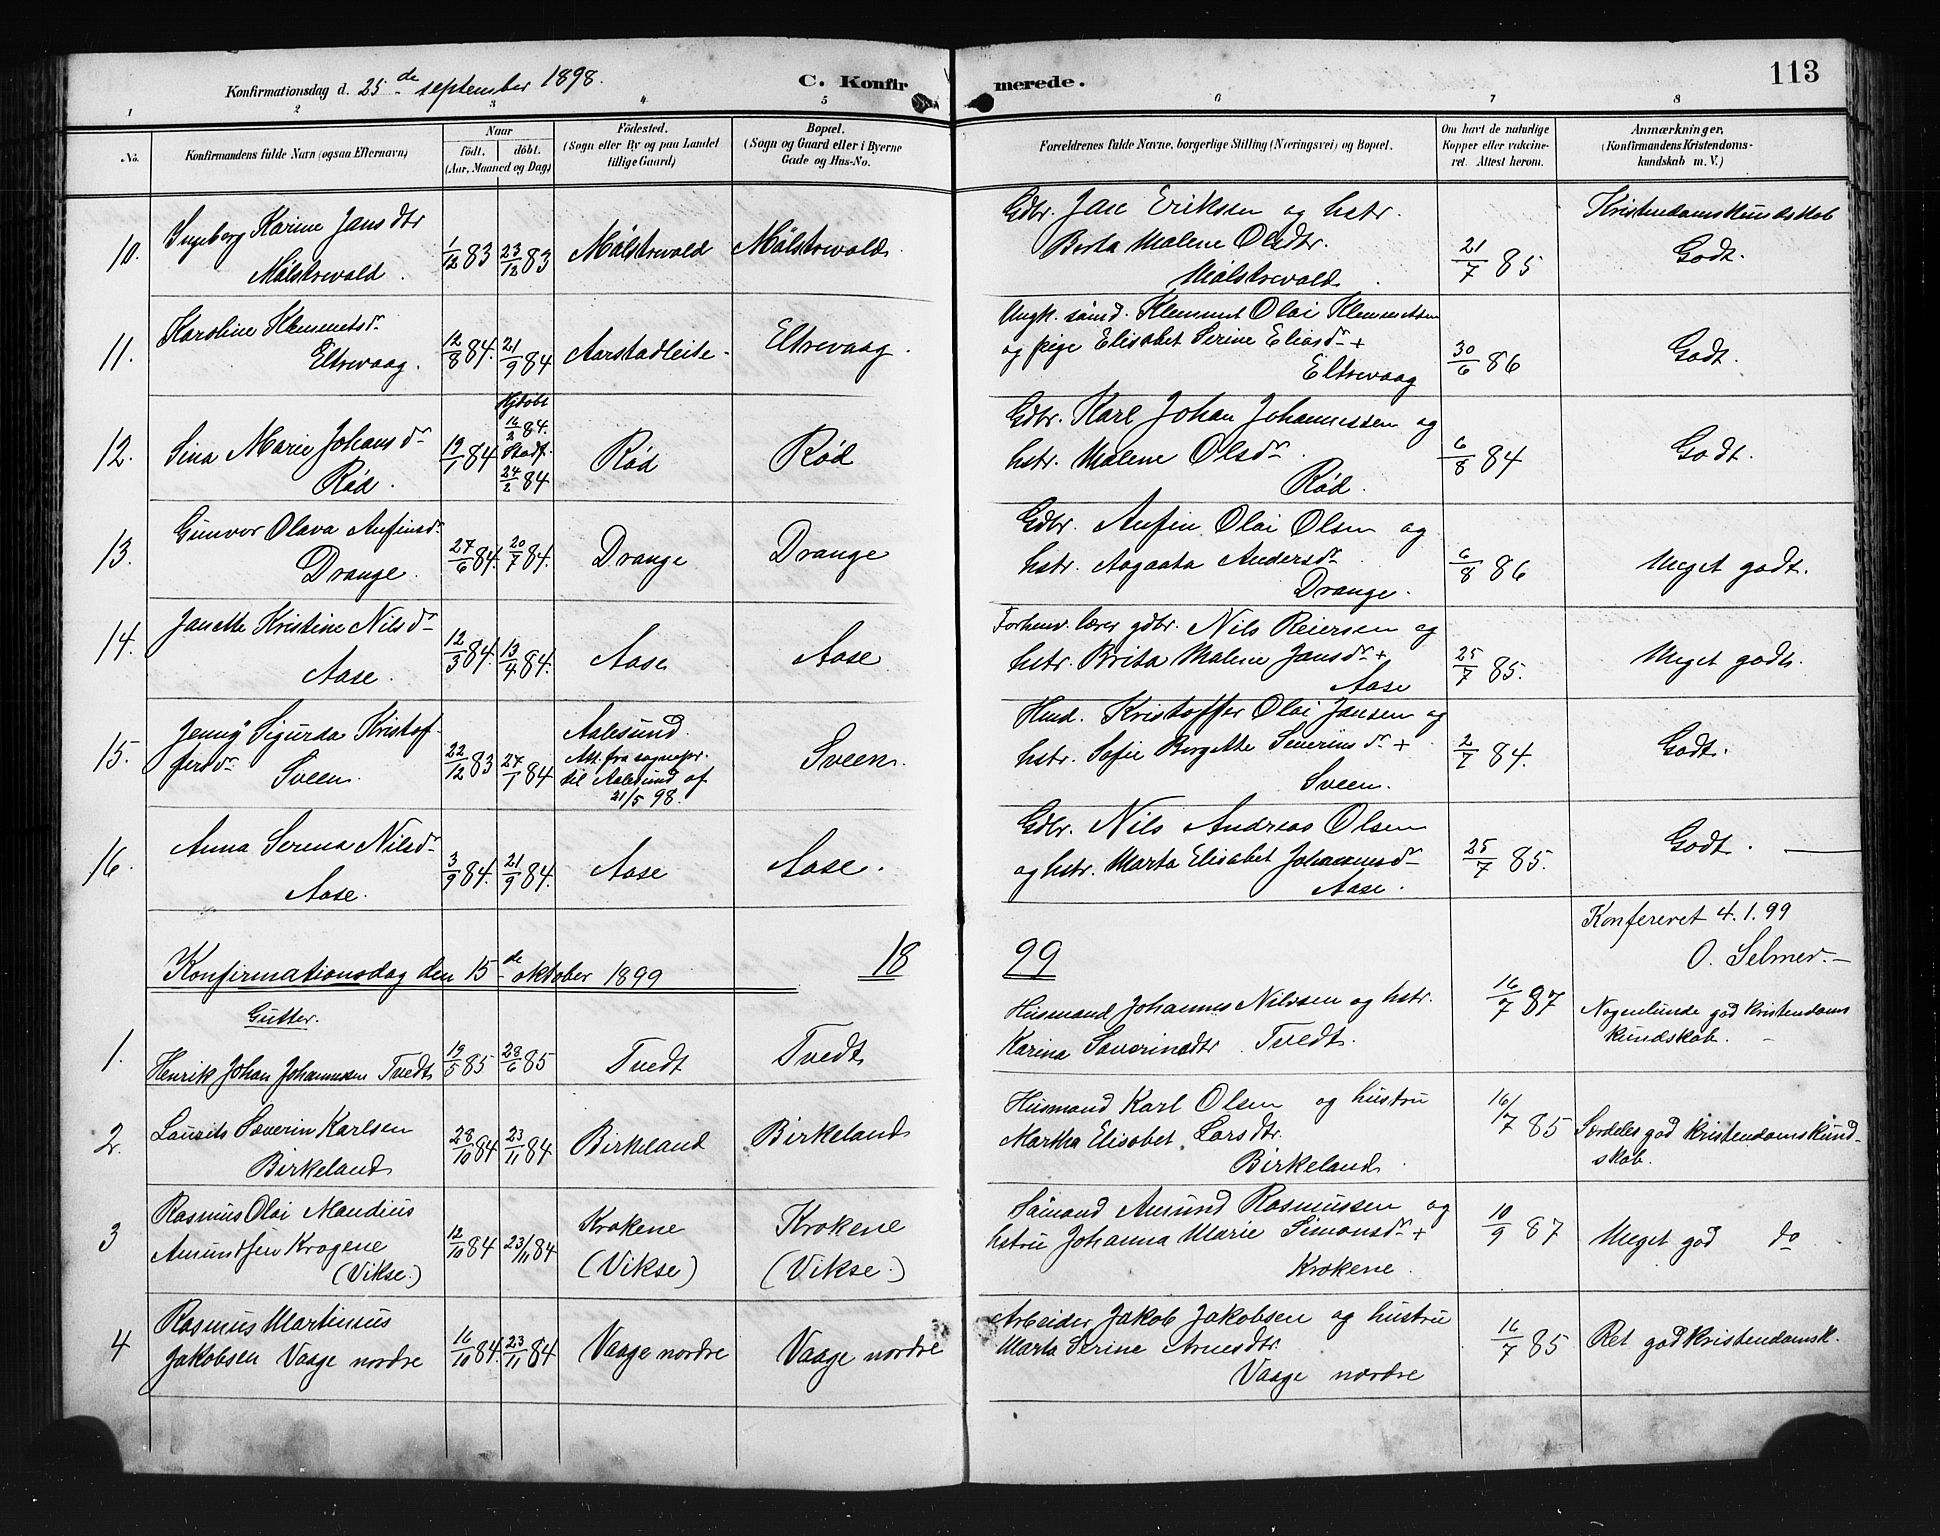 113
Konfirmationsdag d. 25de september 1898.
C. Konfirmerede.
1 2 3 4 5 6 7 8
No.
Konfirmandens fulde Navn (ogsaa Efternavn)
Naar
födt. döbt.
(Aar, Maaned og Dag)
Födested.
(Sogn eller By og paa Landet
tillige Gaard)
Bopæl.
(Sogn og Gaard eller i Byerne
Gade og Hus-No.
Forældrenes fulde Navne, borgerlige Stilling (Næringsvei) og Bopæl.
Om havt de naturlige
Kopper eller vakcine-
ret. Attest herom.
Anmærkninger,
(Konfirmandens Kristendoms-
kundskab m. V.)
10. Ingeborg Karine Jansdtr
Mölstrevold.
1/12 83 23/12 83 Mölstrevold Mölstrevold.
Gdbr. Jan Eriksen og hstr.
Berta Malene Olsdtr.
Mölstrevold.
21/7 85
Kristendomskundskab
Godt.
11. Karoline Klemmetsdr
Eltrevaag.
12/8 84. 21/9 84 Aarstadleite. Eltrevaag.
Ungk. sömd. Klemmet Olai Klemmetsen
og pige Elisabet Serine Eliasdr +
Eltrevaag
30/6 86 Godt.
12. Sina Marie Johansdr
Rød.
19/1 84
Hjdøbt
16/2 84.
Stadf.
24/2 84
Rød Rød
Gdbr. Karl Johan Johannessen og
hstr. Malene Olsdr.
Rød.
6/8 84 Godt.
13. Gunvor Olava Anfinsdr
Drange.
27/6 84. 20/7 84. Drange Drange
Gdbr. Anfin Olai Olsen og
hstr. Aagaata Andersdr
Drange.
6/8 86 Meget godt.
14. Janette Kristine Nilsdr
Aase.
12/3 84. 13/4 84. Aase Aase.
Forhenv. lærer gdbr. Nils Reiersen og
hstr. Brita Malene Jansdr +
Aase
25/7 85. Meget godt.
15. Jenny Sigurda Kristof-
fersdr Sveen.
22/12 83 27/1 84
Aalesund.
Att. fra sognepr.
til Aalesund af
21/5 98.
Sveen.
Hmd. Kristoffer Olai Jansen og
hstr. Sofie Bergette Severinsdr +
Sveen.
2/7 84. Godt.
16. Anna Serena Nilsdr
Aase.
3/9 84. 21/9 84. Aase Aase.
Gdbr. Nils Andreas Olsen
og hstr. Marta Elisabet Johannesdr
Aase.
25/7 85. Godt.
Konfereret 4.1.99
O. Selmer.
Konfirmationsdag den 15de oktober 1899
18 99
Gutter.
1. Henrik Johan Johannesen Tvedt
19/5 85 28/6 85 Tvedt Tvedt
Husmand Johannes Nilssen og hstr.
Karina Severinsdtr Tvedt.
16/7 87
Nogenlunde god kristendoms
kundskab.
2. Laurits Severin Karlsen
Birkeland
28/10 84 23/11 84 Birkeland Birkeland
Husmand Karl Olsen og hustru
Martha Elisabet Larsdtr.
Birkeland.
16/7 85
Særdeles god kristendomskund-
skab.
3 Rasmus Olai Mandius
Amundsen Krogene
(Vikse.)
12/10 84 23/11 84
Krokene
(Vikse)
Krokene
(Vikse.)
Sömand Amund Rasmussen og
hstru Johanna Marie Simonsdr +
Krokene.
10/9 87 Meget god do
4 Rasmus Martinius
Jakobsen Vaage nordre
16/10 84. 23/11 84 Vaage nordre Vaage nordre
Arbeider Jakob Jakobsen og hustru
Marta Serine Arnesdtr.
Vaage nordre
16/7 85 Ret god kristendomsk.